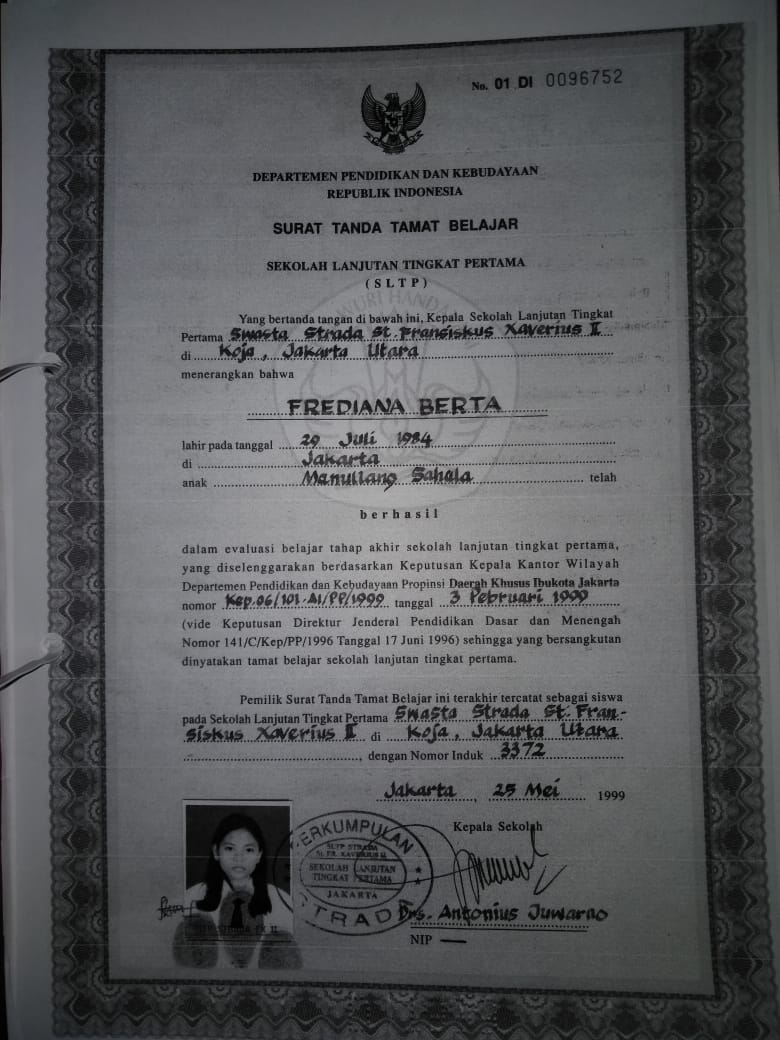 No. 01 DI 0096752
DEPARTEMEN PENDIDIKAN DAN KEBUDAYAAN
REPUBLIK INDONESIA
SURAT TANDA TAMAT BELAJAR
SEKOLAH LANJUTAN TINGKAT PERTAMA
( S L T P )
Yang bertanda tangan di bawah ini, Kepala Sekolah Lanjutan Tingkat
Pertama Swasta Strada St. Fransiskus Xaverius II
di Koja, Jakarta Utara
menerangkan bahwa
FREDIANA BERTA
lahir pada tanggal 29 Juli 1984
di Jakarta
anak Manullang Sahala telah
berhasil
dalam evaluasi belajar tahap akhir sekolah lanjutan tingkat pertama,
yang diselenggarakan berdasarkan Keputusan Kepala Kantor Wilayah
Departemen Pendidikan dan Kebudayaan Propinsi Daerah Khusus Ibukota Jakarta
nomor Kep.06/101-A1/PP/1999 tanggal 3 Pebruari 1999
(vide Keputusan Direktur Jenderal Pendidikan Dasar dan Menengah
Nomor 141/C/Kep/PP/1996 Tanggal 17 Juni 1996) sehingga yang bersangkutan
dinyatakan tamat belajar sekolah lanjutan tingkat pertama.
Pemilik Surat Tanda Tamat Belajar ini terakhir tercatat sebagai siswa
pada Sekolah Lanjutan Tingkat Pertama Swasta Strada St. Fran-
siskus Xaverius II di Koja, Jakarta Utara
, dengan Nomor Induk 3372
Jakarta, 25 Mei 1999
Kepala Sekolah
PERKUMPULAN
SLTP STRADA
St. FR. XAVERIUS II
SEKOLAH LANJUTAN
TINGKAT PERTAMA
JAKARTA
STRADA
Drs. Antonius Juwarno
NIP —